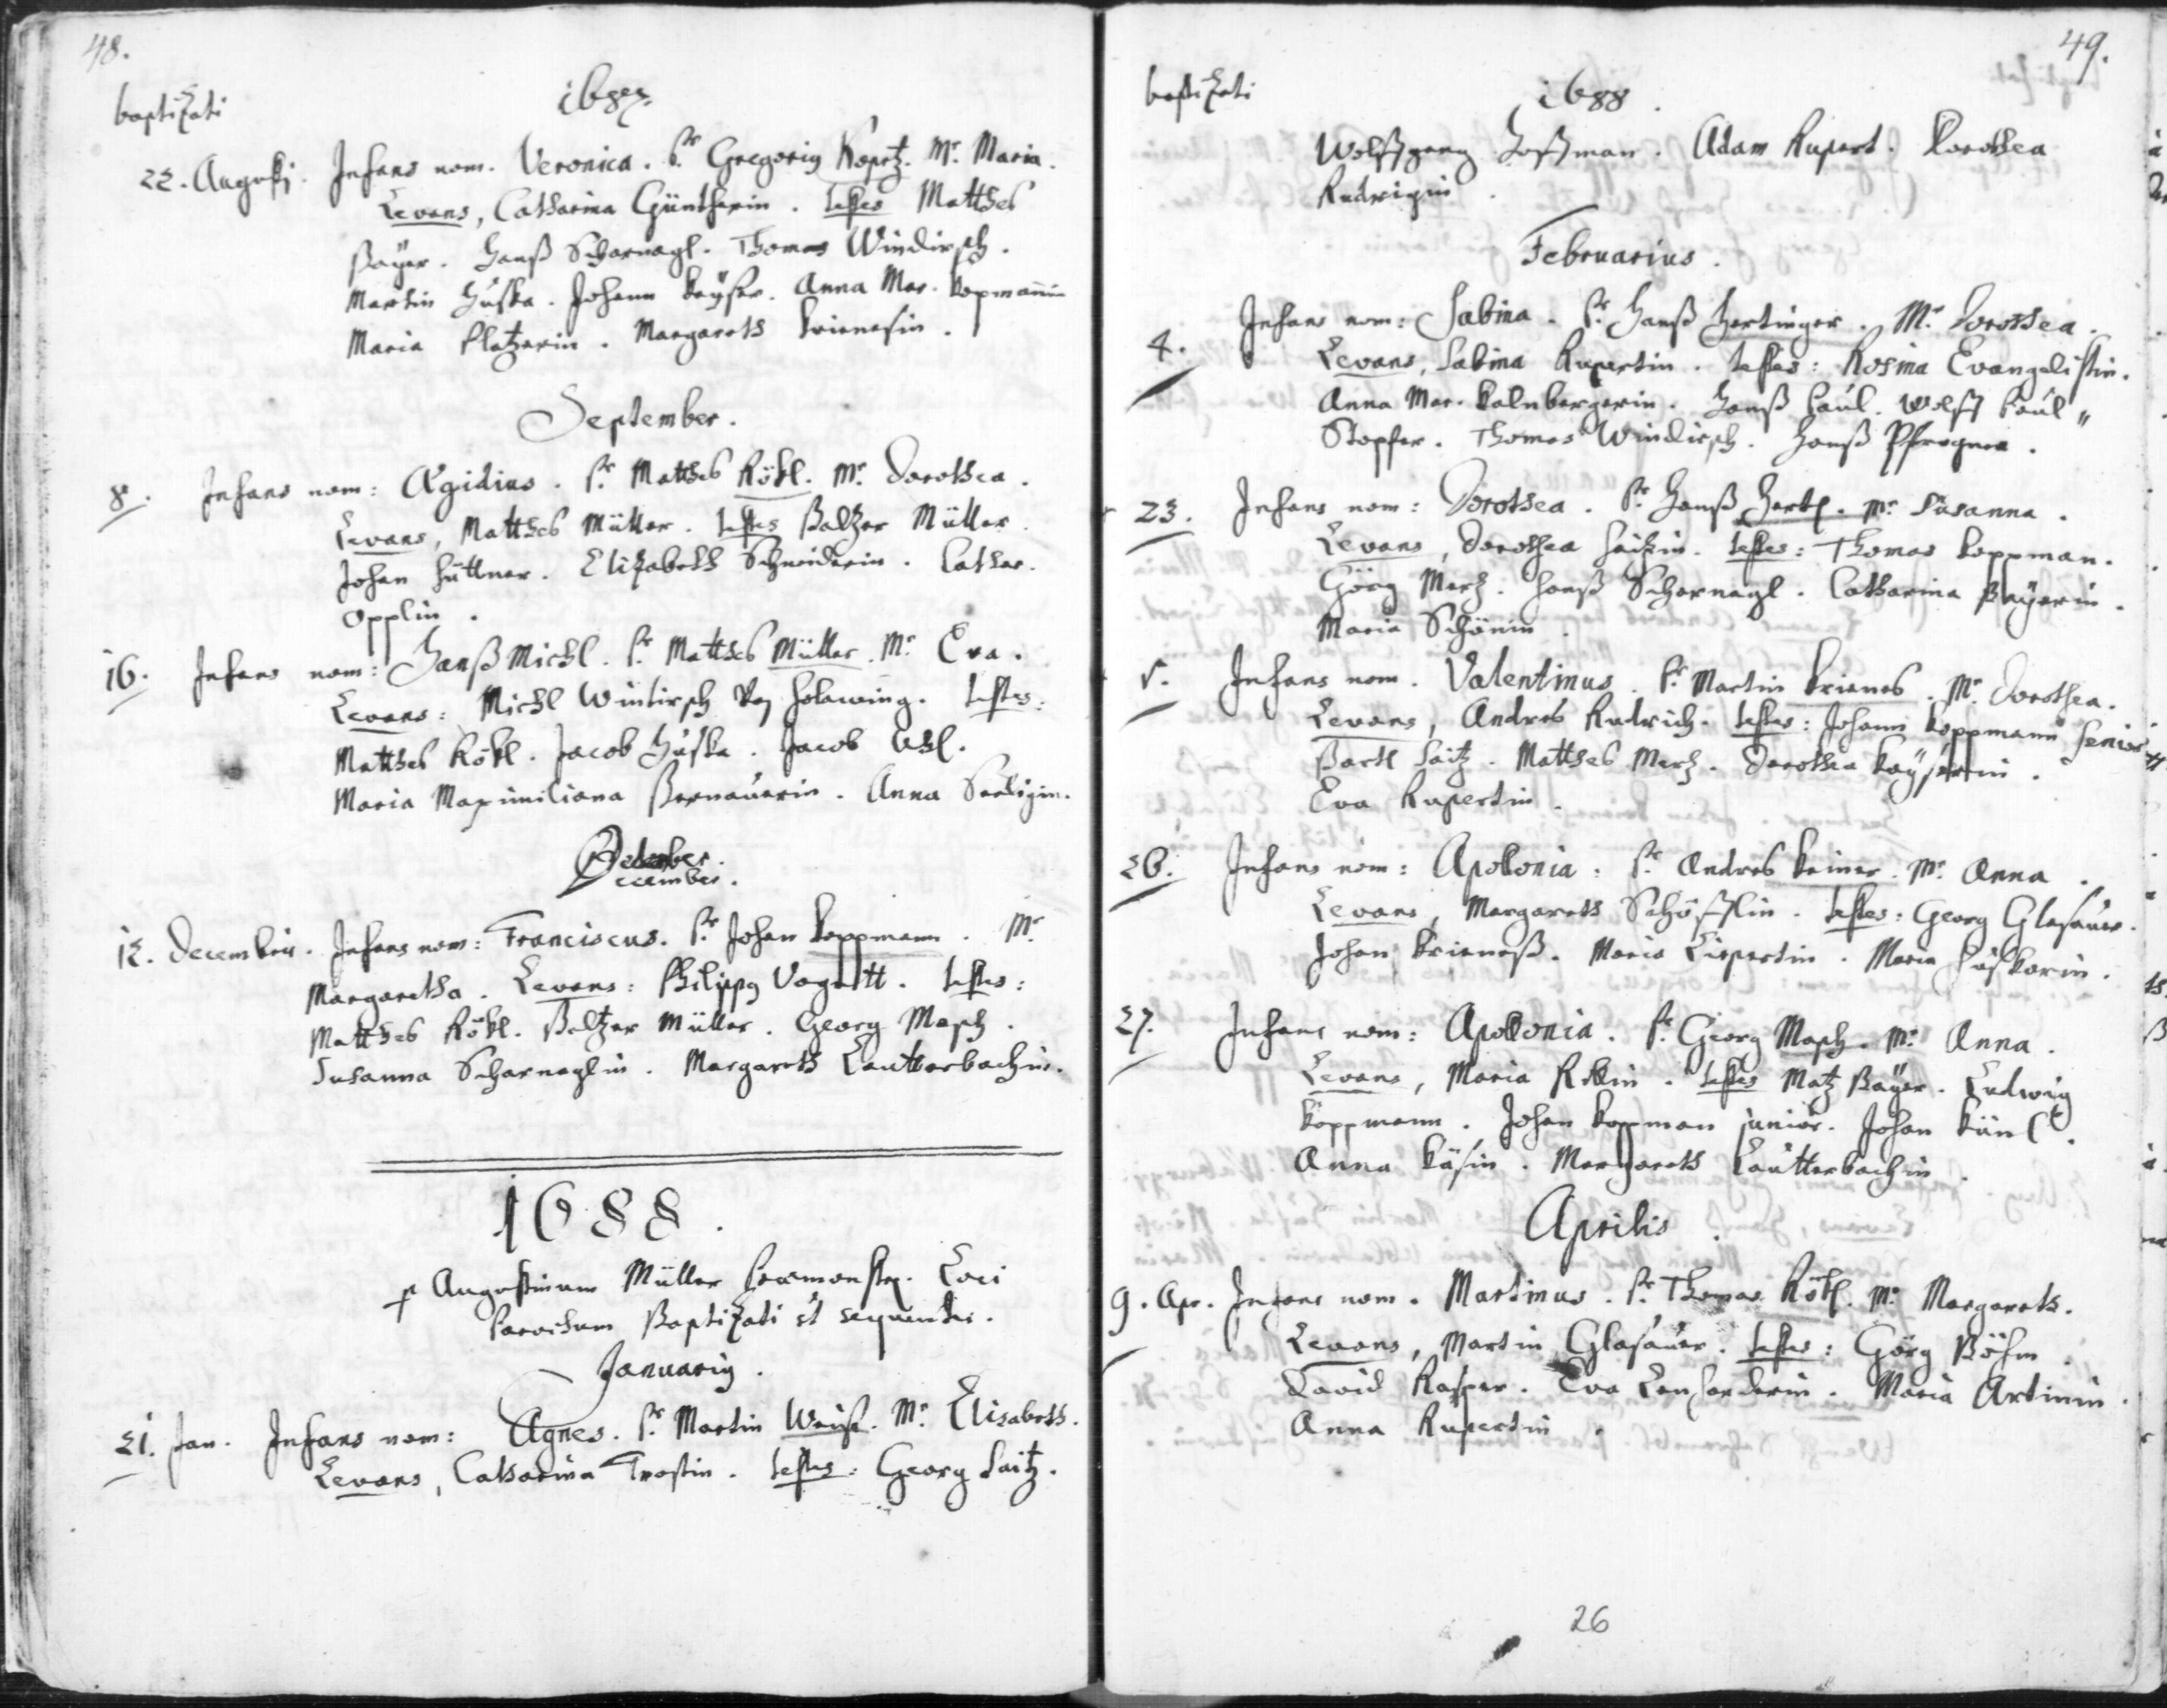 48.
baptizati
1687.
22. Augusti. Infans nom. Veronica. Pr. Gregorius Kopetz. Mr. Maria.
Levans, Catharina Güntherin. testes Matthes
Bayer. Hanß Scharnagl. Thomas Windirsch.
Martin Huska. Johann Kayser. Anna Mar. Kopmannin
Maria Platzerin. Margareth Krienesin.
September.
8. Infans nom: Ægidius. Pr. Matthes Rökl. Mr. Dorothea.
Levans, Matthes Müller. testes Baltzer Müller.
Johan Hüttner. Elizabeth Schneiderin. Cathar.
Opplin.
16. Infans nom: Hanß Michl. Pr. Matthes Müller. Mr. Eva.
Levans: Michl Wintirsch von Holawing. testes:
Matthes Rökl. Jacob Huska. Jacob
Maria Maximiliana Bernauerin. Anna Seeligin.
December.
12. Decembris. Infans nom: Franciscus. Pr. Johan Koppmann. Mr.
Margaretha. Levans: Philippus Vogott. testes:
Matthes Rökl. Baltzer Müller. Georg Mesch.
Susanna Scharnaglin. Margareth Lautterbachin.
1688.
p Augustinum Müller Praemonstr. Loci
Parochum Baptizati ut sequentes.
Januarius.
21. Jan. Infans nom: Agnes. Pr. Martin Weiß. Mr. Elisabeth.
Levans, Catharina Trostin. testes: Georg Saitz.
49.
baptizati
1688.
Wolfgang Hoffman. Adam Rupert. Dorothea
Rudrigin.
Februarius.
4. Infans nom: Sabina. Pr. Hanß Hertinger. Mr. Dorothea.
Levans, Sabina Rupertin. testes: Rosina Evangelistin.
Anna Mar. Kalnbergerin. Hanß Paul. Wolff Paul"
Stopfer. Thomas Windirsch. Hanß Pfrogner.
23. Infans nom: Dorothea. Pr. Hanß Hertl. Mr. Susanna.
Levans, Dorothea Saitzin. testes: Thomas Koppman.
Görg Merz. Hanß Scharnagl. Catharina Bayerin.
Maria Schönin.
5. Infans nom. Valentinus. Pr. Martin Krienes. Mr. Dorothea.
Levans, Andres Rudrich. testes: Johann Koppmann Senior
Bartl Saitz. Matthes Merz. Dorothea Kayserin.
Eva Rupertin.
26. Infans nom: Apolonia: Pr. Andres Keiner. Mr. Anna.
Levans, Margareth Schöfflin. testes: Georg Glasauer.
Johan Krieneß. Maria Liepertin. Maria Huskarin.
27. Infans nom: Apollonia. Pr. Georg Mesch. Mr. Anna.
Levans, Maria Röklin. testes Matz Bayer. Ludwig
Koppmann. Johan Koppman junior. Johan Künl.
Anna Käsin. Margareth Lautterbachin.
Aprilis
9. Apr. Infans nom. Martinus. Pr. Thomas Rökl. Mr. Margareth.
Levans, Martin Glasauer. testes: Görg Böhm.
David Kasper. Eva Lenharderin. Maria Artinin.
Anna Rupertin.
26